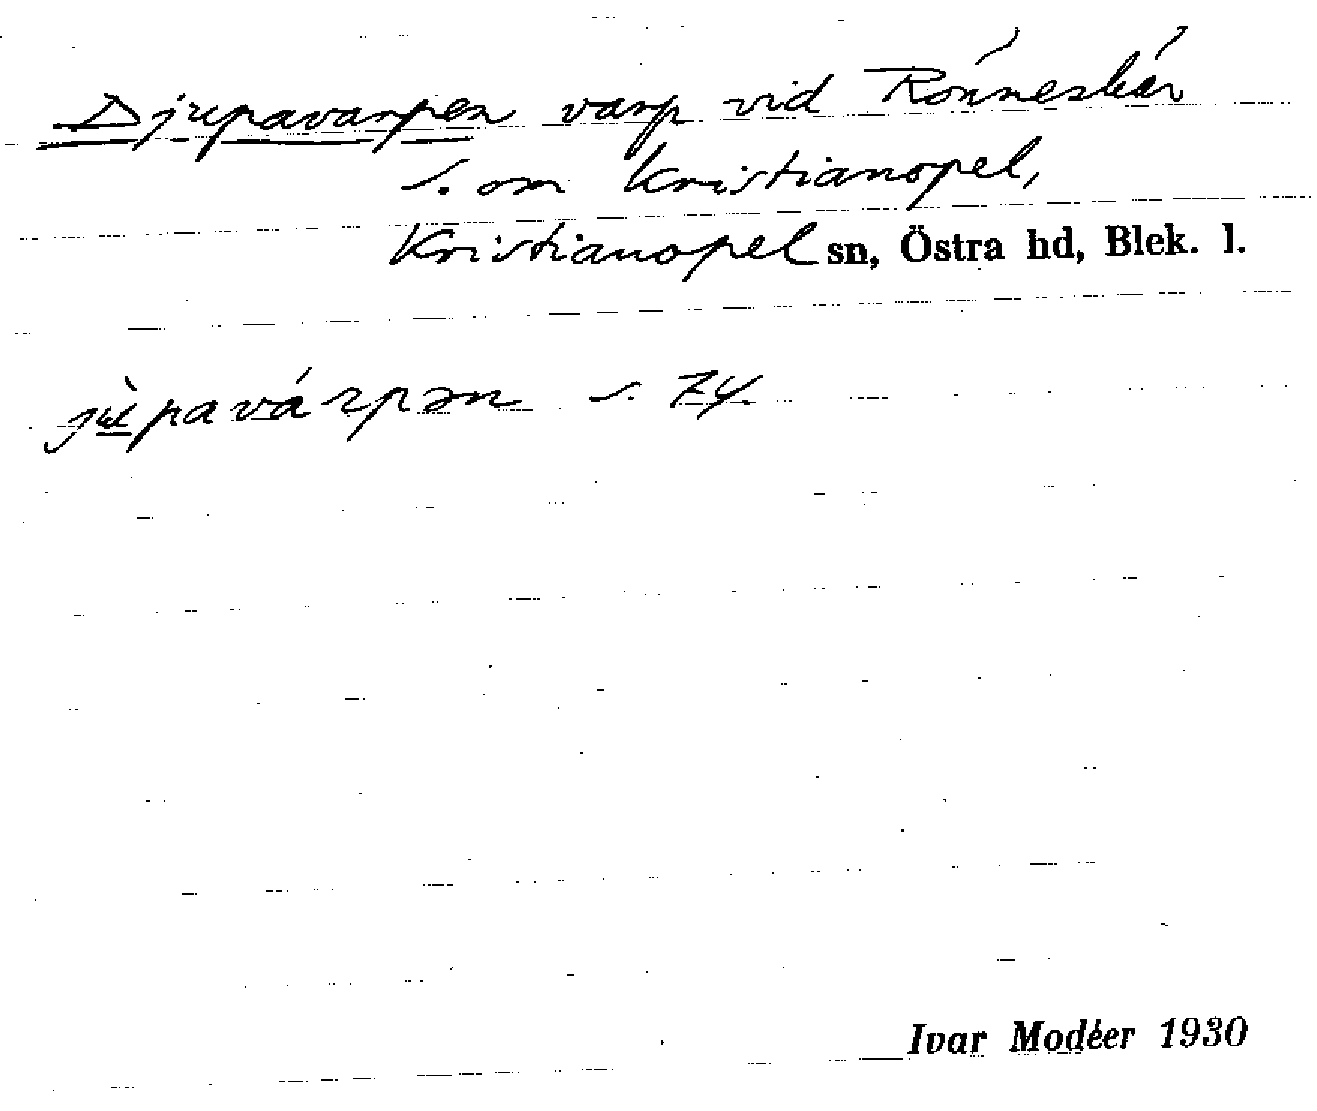 Djupavarpen varp vid Rönneskär
s. om Kristianopel,
Kristianopel sn, Östra hd, Blek. l.
s.
Ivar Modéer 1930